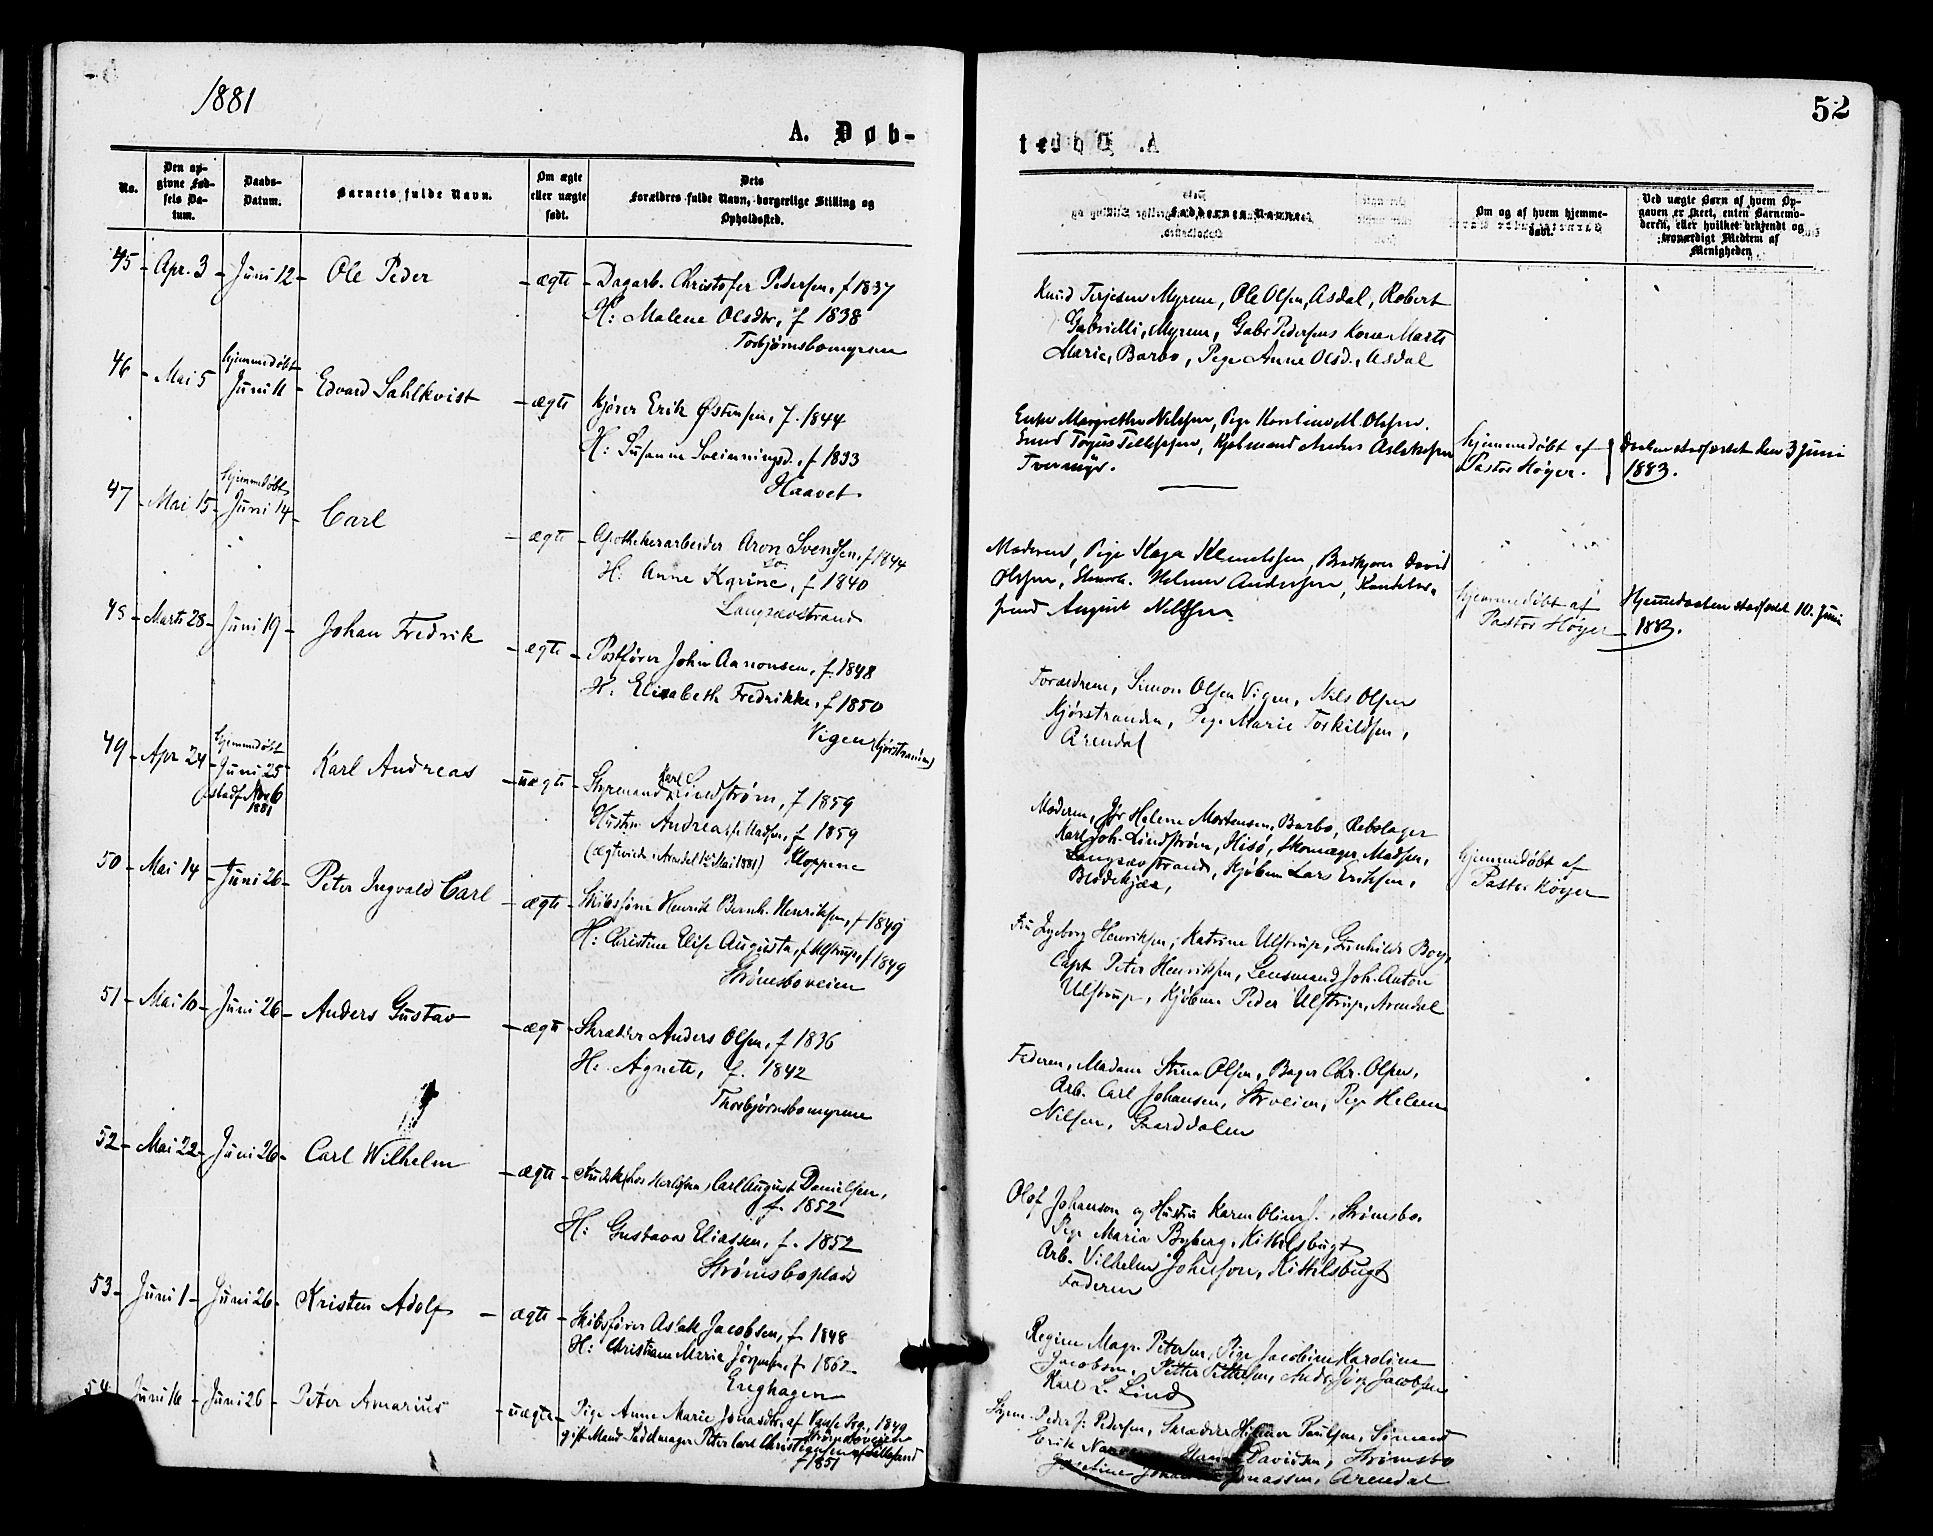 1881
A. Døb-
No.
Den op-
givne Fød-
sels Da-
tum.
Daabs-
Datum.
Barnets fulde Navn.
Om ægte
eller uægte
født.
Dets
Forældres fulde Navn, borgerlige Stilling og
Opholdssted.
45 - Apr. 3 - Juni 12 - Ole Peder - ægte - Dagarb. Christofer Pedersen, f 1837
H: Malene Olsdtr, f 1838
Torbjørnsbomyrene
46 - Mai 5 hjemmedøbt
Juni 11 - Edvard Sahlkvist - ægte Kjører Erik Østensen, f. 1844
H: Susanne Sveinningsd., f 1833
Haavet
47 - Mai 15 - hjemmedøbt
Juni 14 - Carl - ægte - Apothekerarbeider Aron Svendsen, f 1844
H: Anne Karine, f 1840
Langsævstrand
48 - Marts 28 - Juni 19 - Johan Fredrik - ægte - Postfører John Aanonsen, f. 1848
H: Elisabeth Fredrikke, f 1850
Vigen
49 - Apr 24 - hjemmedøbt
Juni 25
stadf. Nov 6
1881
Karl Andreas - uægte - Styrmand Karl Lindstrøm, f 1859
Hustru Andrea Madsen, f 1859
Kloppene
50 - Mai 14 - Juni 26 - Peter Ingvald Carl - ægte - Skibsfører Henrik Bernh. Henriksen, f 1849
H: Christine Elise Augusta, f. Ulstrup, f. 1849
Strømsboveien
51 - Mai 10 - Juni 26 - Anders Gustav - ægte - Skrædder Anders Olsen, f 1836
H: Agnete, f. 1842
Thorbjørnsbomyrene
52 - Mai 22 - Juni 26 - Carl Wilhelm - ægte - Carl August Danielsen,
f. 1852
H: Gustava Eliassen, f. 1852
Strømsboplads
53 - Juni 1 - Juni 26 - Kristen Adolf - ægte - Skibsfører Aslak Jacobsen, f. 1848
H: Christiane Marie f. 1862
Enghagen
54 Juni 16 - Juni 26 - Peter Amarius - uægte - Pige Anne Marie Jonasdtr. af 1849
gift Mand Sadelmager Peter Carl Christensen af Lillesand
f 1851
52
Faddernes Navne.
Om og af hvem hjemme-
døbt.
Ved uægte Børn af hvem Op-
gaven er skeet, enten Barnemo-
deren, eller hvilket bekjendt og
troværdigt Medlem af
Menigheden
Knud Terjesen Myrene, Ole Olsen, Asdal, Robert
Gabrielli, Myrene, Gabr Pedersens Kone Marte
Marie, Barbo, Pige Anne Olsd., Asdal
Enke Margrethe Nilssen, Pige Karoline M. Olssen.
Svend Tellefsen, Anders Aslaksen
Hjemmedøbt af
Pastor Høyer.
Daaben stadfæstet den 3 Juni
1883.
Moderen, Pige Kaja Klemetsen, David
Olssen, Helmer Andersen,
August Nilssen
Hjemmedøbt af
Pastor Høyer
Hjemmedaaben stadfæstet 10. Juni
1883.
Forældrene, Simon Olsen Vigen, Nils Olsen
Kjørstranden, Pige Marie Torkildsen,
Arendal
Moderen, Helene Mortensen, Barbo, Rebslager
Karl Joh. Lindstrøm, Hisø, Skomager Madsen,
Langsævstrand, Lars Eriksen,
Blødekjær,
Hjemmedøbt af
Pastor Høyer
Fru Ingeborg Henriksen, Katrine Ulstrup, Gunhilde Boye,
Capt. Peter Henriksen, Lensmand Joh. Anton
Ulstrup, Kjøbm. Peder Ulstrup, Arendal
Faderen, Madam Stina Olsen, Bager Chr. Olsen,
Arb. Carl Johansen, Pige Helene
Nilsen,
Olof Johanson og Hustru Karen Strømsbo.
Pige Maria Byberg, Kittelsbugt
Arb. Vilhelm Johnson, Kittelsbugt
Faderen
Regine Petersen, Pige Jacobine Karoline
Jacobsen, Petter Pettersen, Jacobsen
Karl L. Lind
Peder J. Pedersen, Skrædder Hilmer Paulsen, Sømand
Erik Davidsen, Strømsbo
Jonassen, Arendal